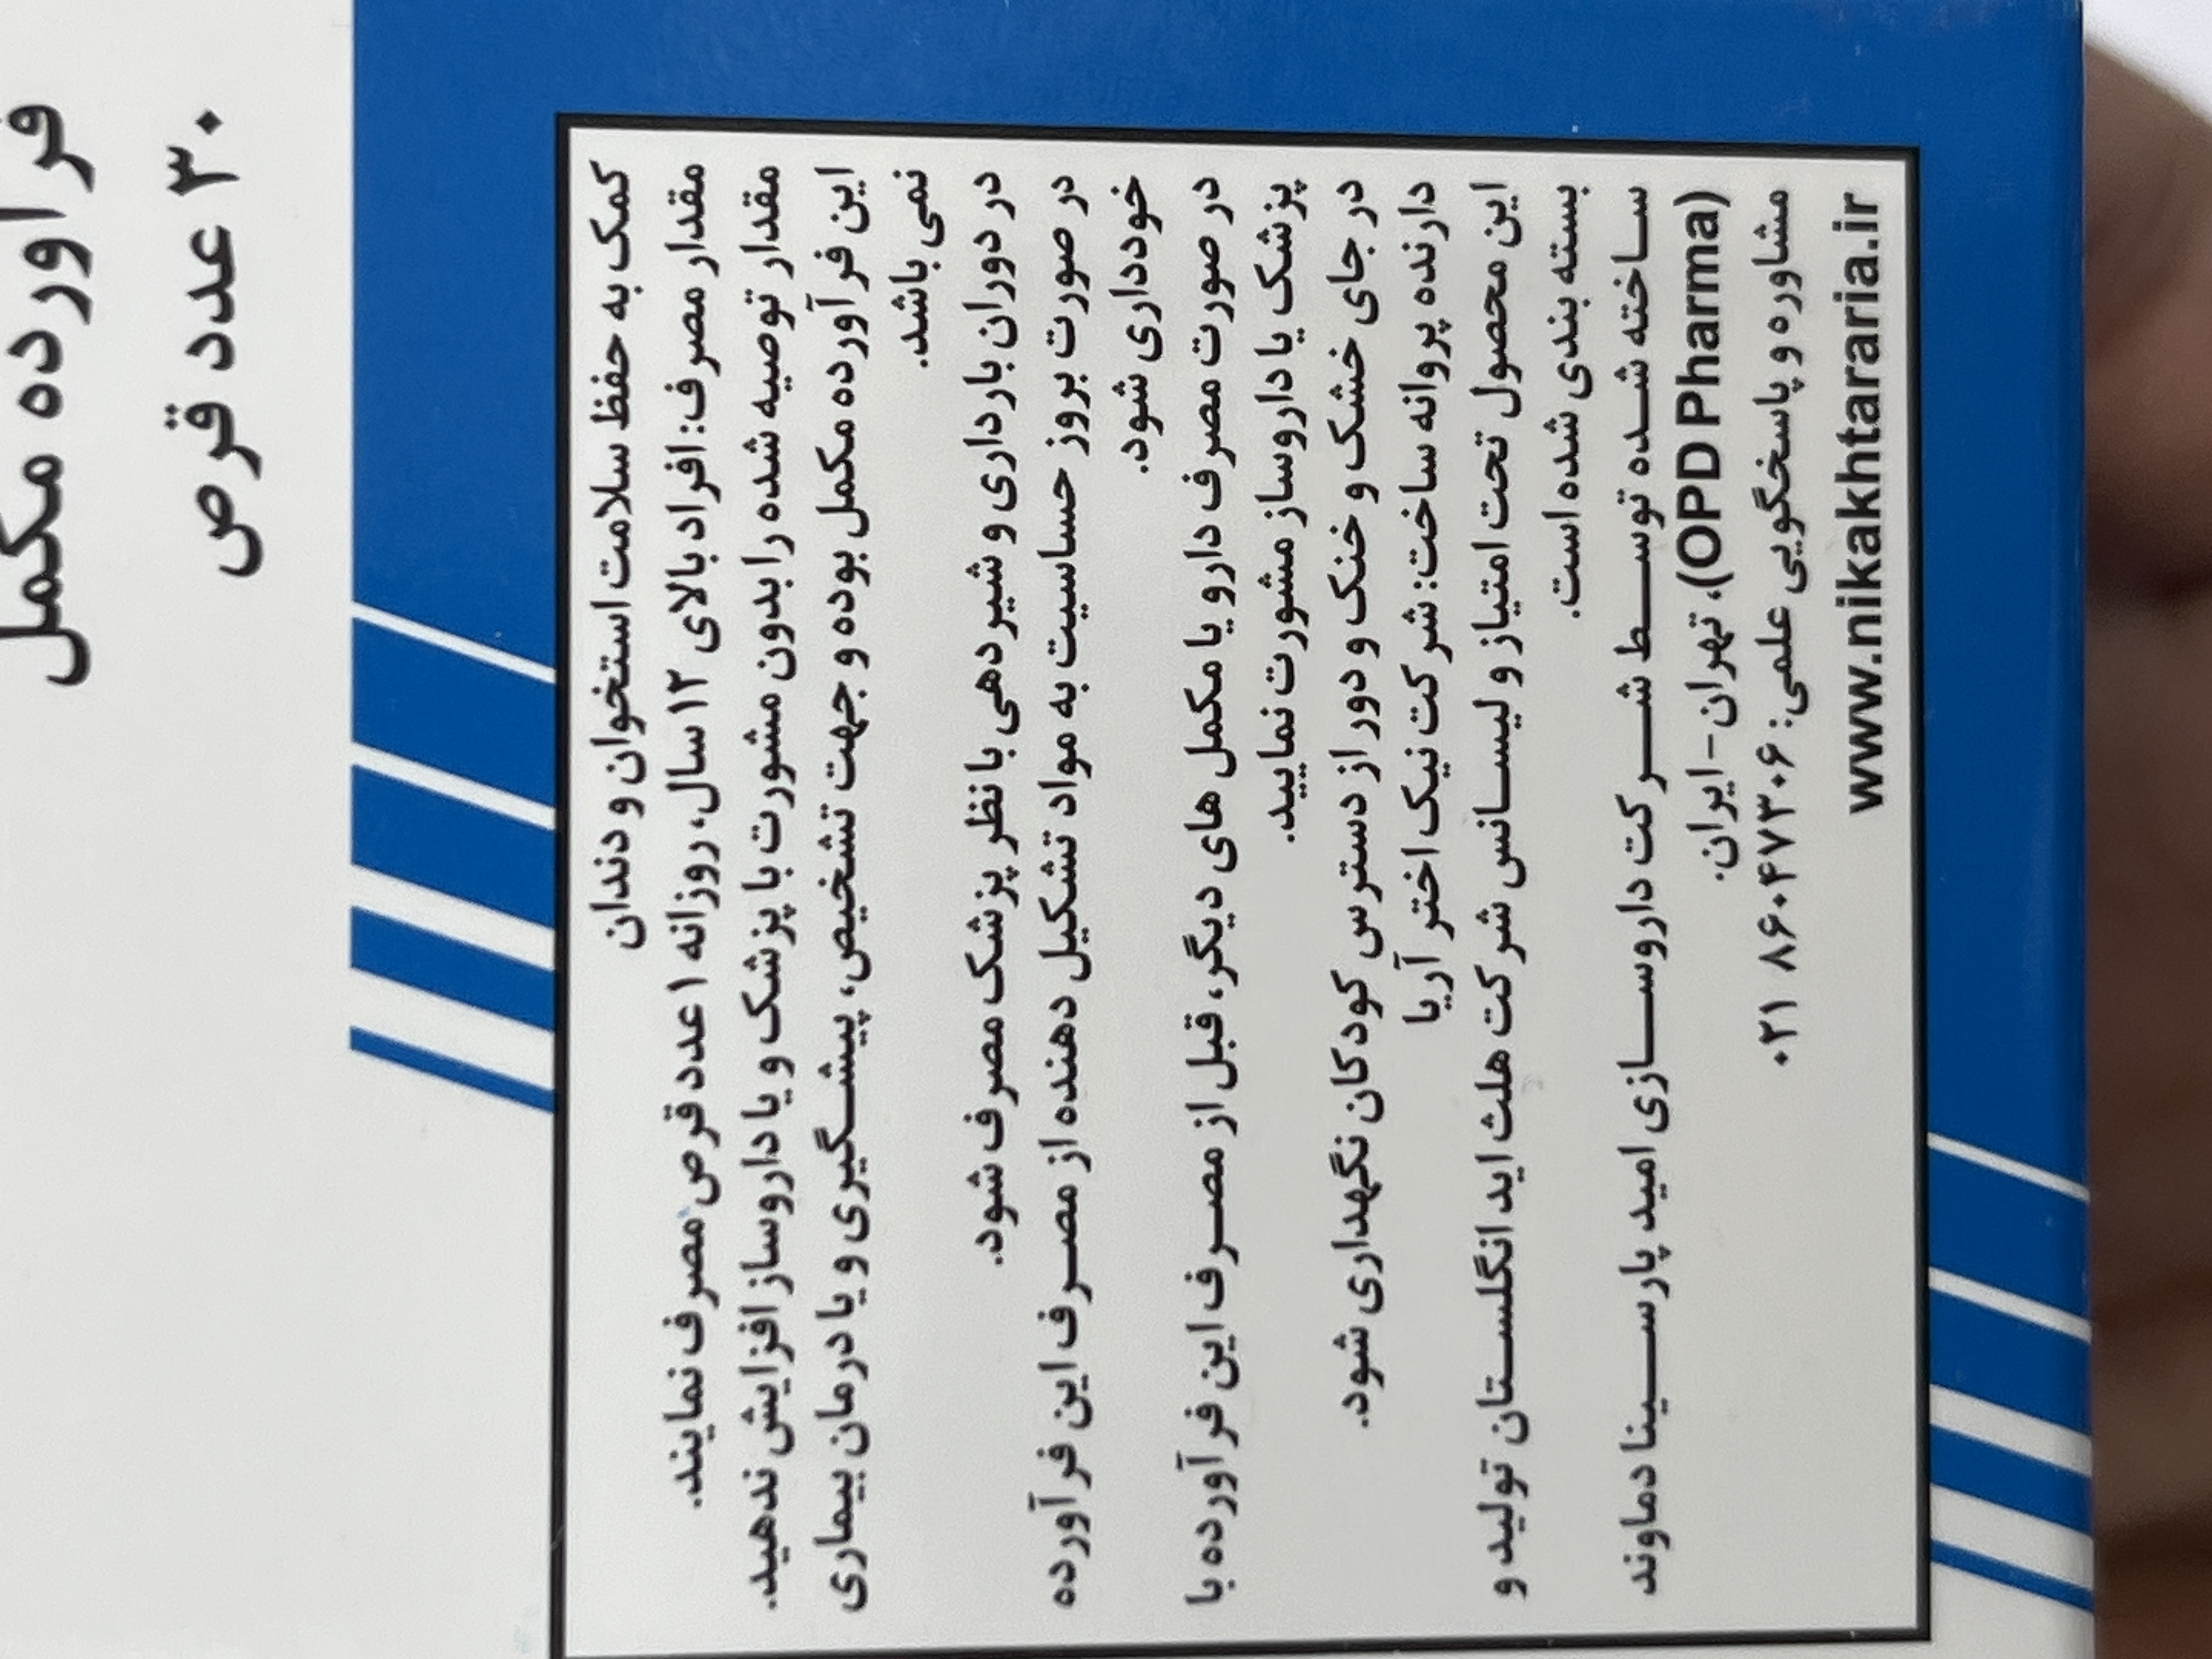 فرآورده مکمل
۳۰ عدد قرص
کمک به حفظ سلامت استخوان و دندان
مقدار مصرف: افراد بالای ۱۲ سال، روزانه ۱ عدد قرص مصرف نمایند.
مقدار توصیه شده را بدون مشورت با پزشک و یا داروساز افزایش ندهید.
این فرآورده مکمل بوده و جهت تشخیص، پیشگیری و یا درمان بیماری
نمی باشد.
در دوران بارداری و شیردهی با نظر پزشک مصرف شود.
در صورت بروز حساسیت به مواد تشکیل دهنده از مصرف این فرآورده
خودداری شود.
در صورت مصرف دارو یا مکمل های دیگر، قبل از مصرف این فرآورده با
پزشک یا داروساز مشورت نمایید.
در جای خشک و خنک و دور از دسترس کودکان نگهداری شود.
دارنده پروانه ساخت: شرکت نیک اختر آریا
این محصول تحت امتیاز و لیسانس شرکت هلث اید انگلستان تولید و
بسته بندی شده است.
ساخته شده توسط شرکت داروسازی امید پارسینا دماوند
(OPD Pharma)، تهران-ایران.
مشاوره و پاسخگویی علمی: ۸۶۰۴۷۳۰۶ ۰۲۱
www.nikakhtararia.ir